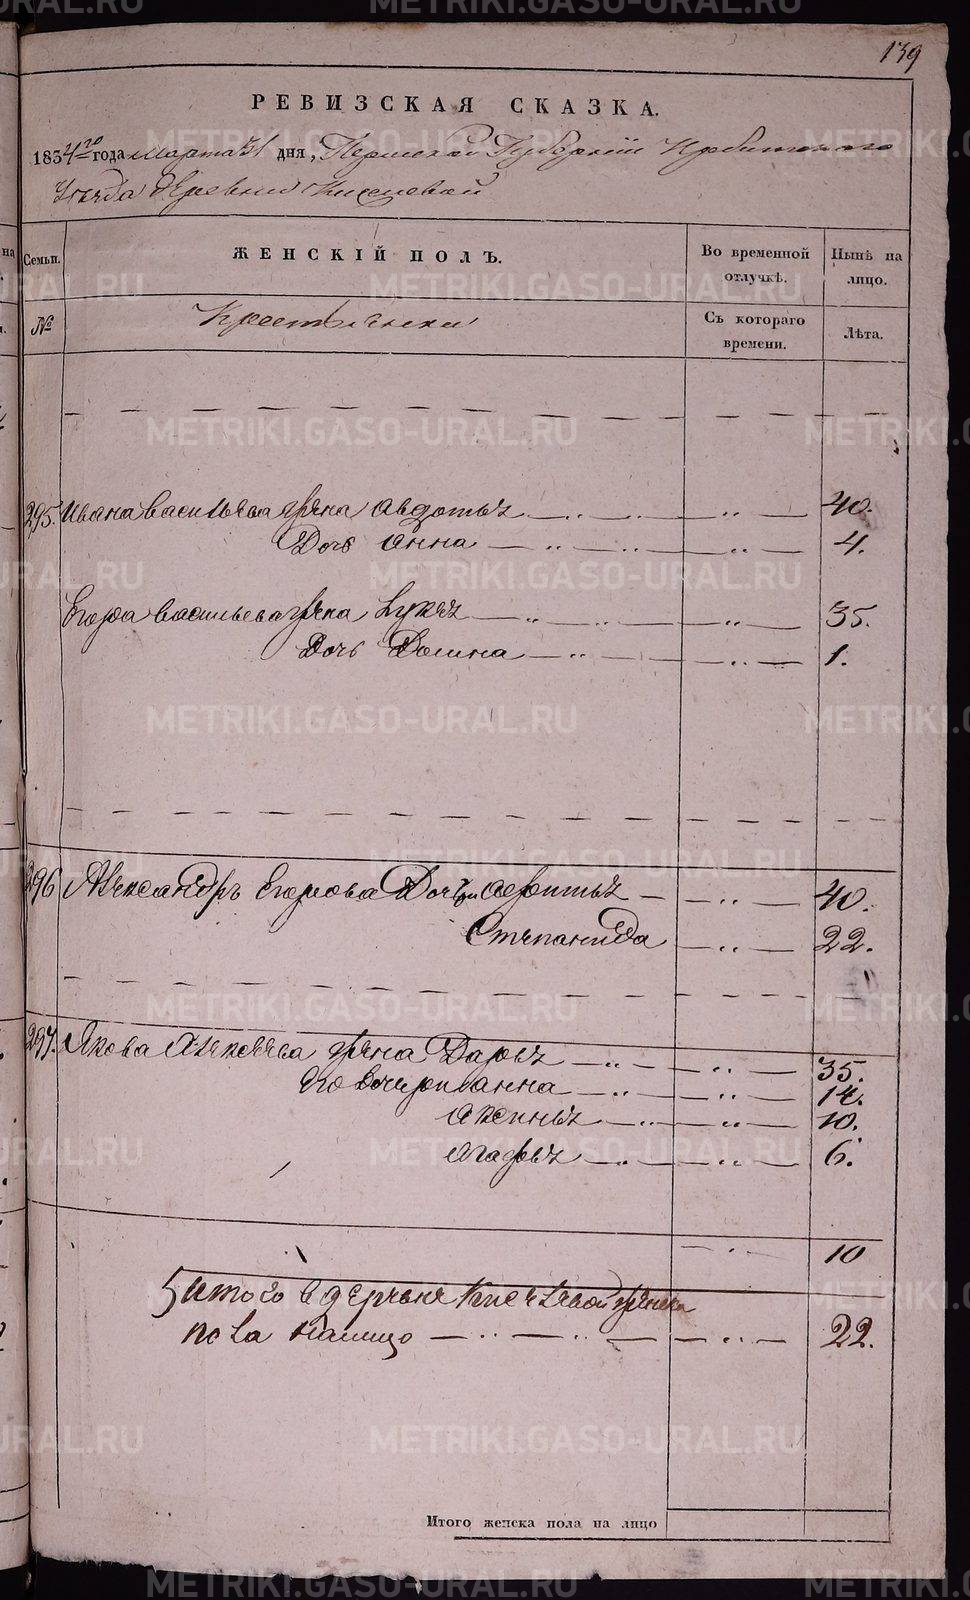 139
РЕВИЗСКАЯ СКАЗКА.
1834го года Марта 31 дня, Пермской Губернiи Ирбитского
Уезда деревни
Семьи. ЖЕНСКIЙ ПОЛЪ. Во временной отлучкѣ. Нынѣ на лицо.
№ Крестьянски Съ котораго времени. Лѣта.
295. Ивана Васильева жена Авдотья 40.
Дочь Анна 4.
Егора Васильева жена Лукия 35.
Дочь Домина 1.
296 Александръ Егорова Дочери Афитья 40.
Степанида 22.
297. Якова Алексеева жена Дарья 35.
Его дочери Анна 14.
Аксинья 10.
Агафья 6.
10
5 итого в деревне женска
пола налицо 22.
Итого женска пола на лицо
METRIKI.GASO-URAL.RU